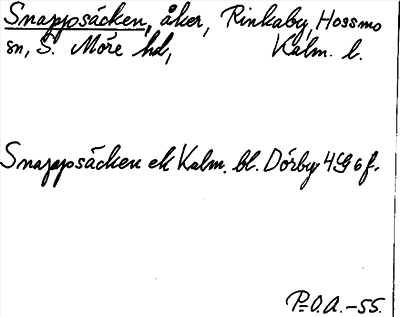 Snappsäcken, åker, Rinkaby, Hossmo
sn, S. Möre hd, Kalm. l.
Snappsäcken ek Kalm. bl. Dörby 4G6f.
P=O.A.-55.